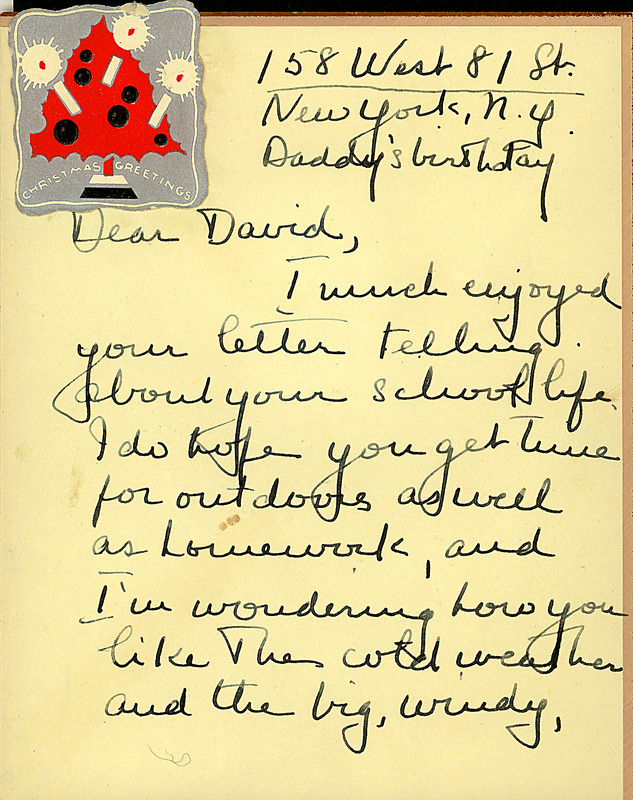 CHRISTMAS GREETINGS
158 West 81 St.
New York, N.Y.
Daddy's birthday
Dear David,
I much enjoyed
your letter telling
about your school life.
I do hope you get time
for outdoors as well
as homework, and
I'm wondering how you
like the cold weather
and the big, windy,